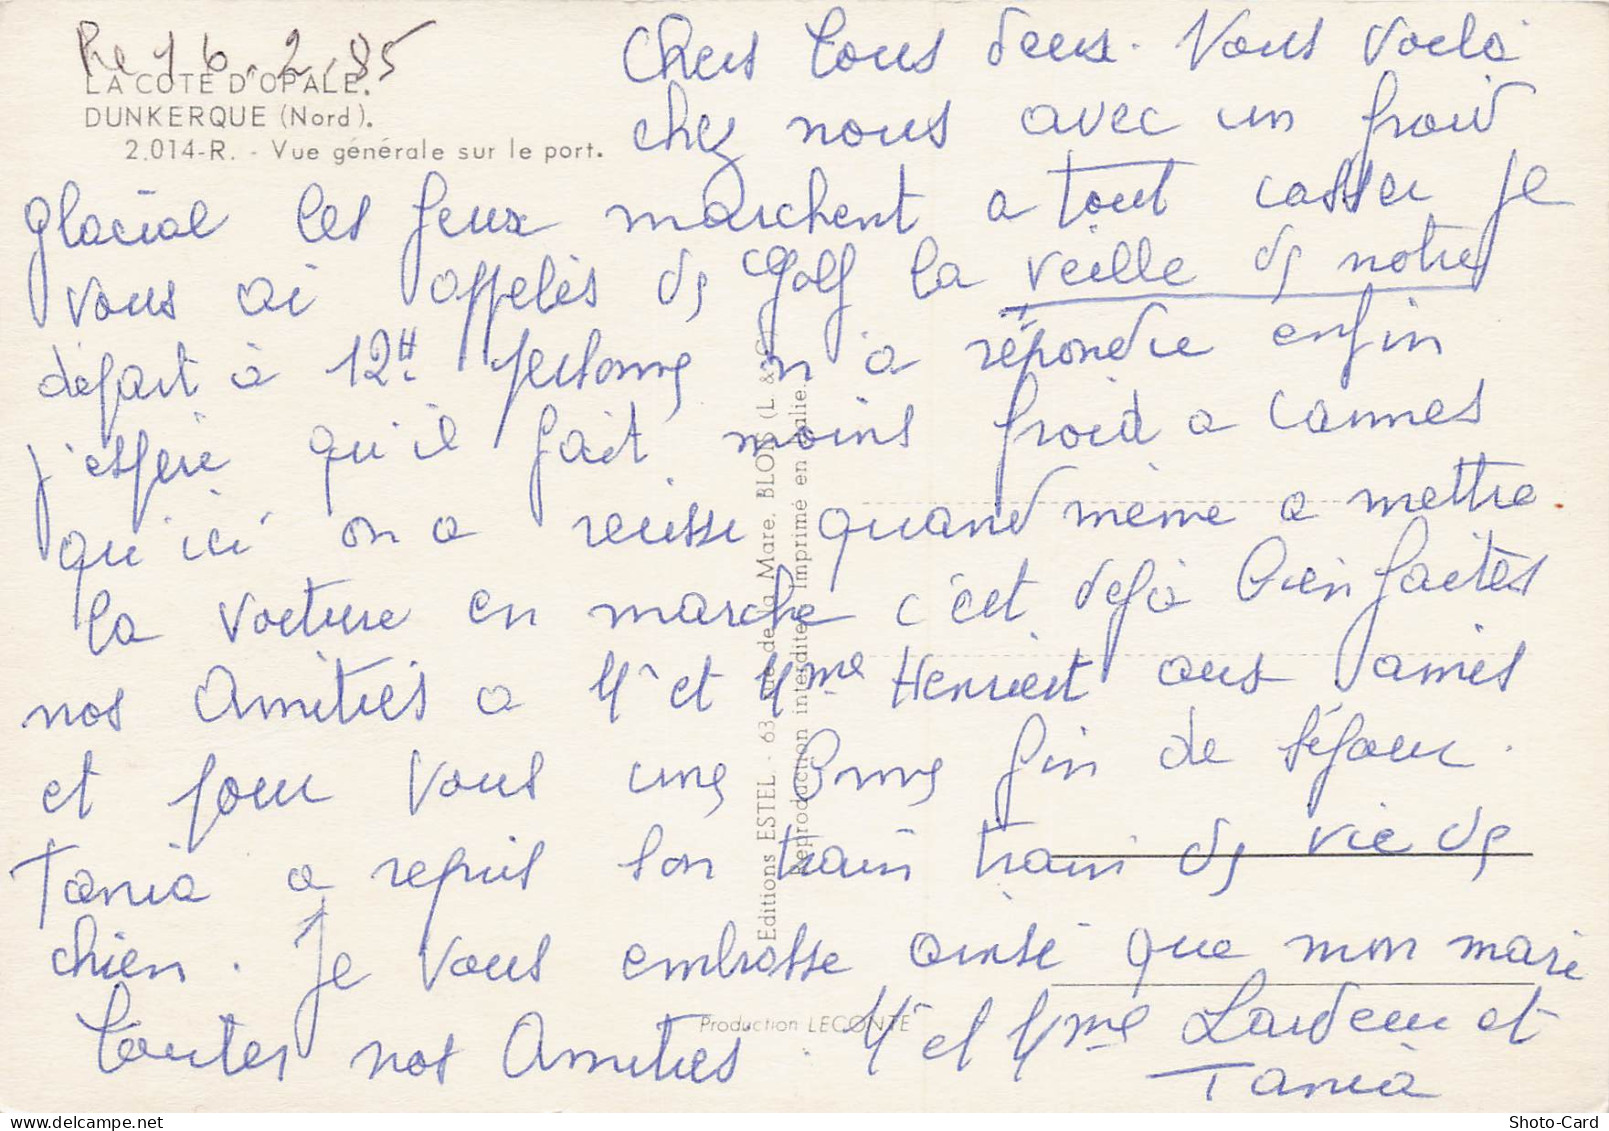 Re 16.2.85
LA COTE D'OPALE.
DUNKERQUE (Nord).
2.014-R. - Vue générale sur le port.
Chers tous deux. Nous voilà
chez nous avec un froid
glacial les feux marchent a tout casser Je
vous ai appelés de Golf la veille de notre
départ à 12H. personne n'a répondre enfin
j'espère qu'il fait moins froid a Cannes
qu'ici on a reussi quand même a mettre
la voiture en marche c'est dejà bien faites
nos Amitiés a Mr et Mme Henriert aux amies
et pour vous une bonne fin de séjour.
Tania a repris son train train de vie de
chien. Je vous embrasse ainsi que mon mari
toutes nos Amitiés. Mr et Mme et
Tania
Editions ESTEL - 63, rue de la Mare. BLOIS (L. & C.)
Reproduction interdite. Imprimé en Italie.
Production LECONTE
Shoto-Card